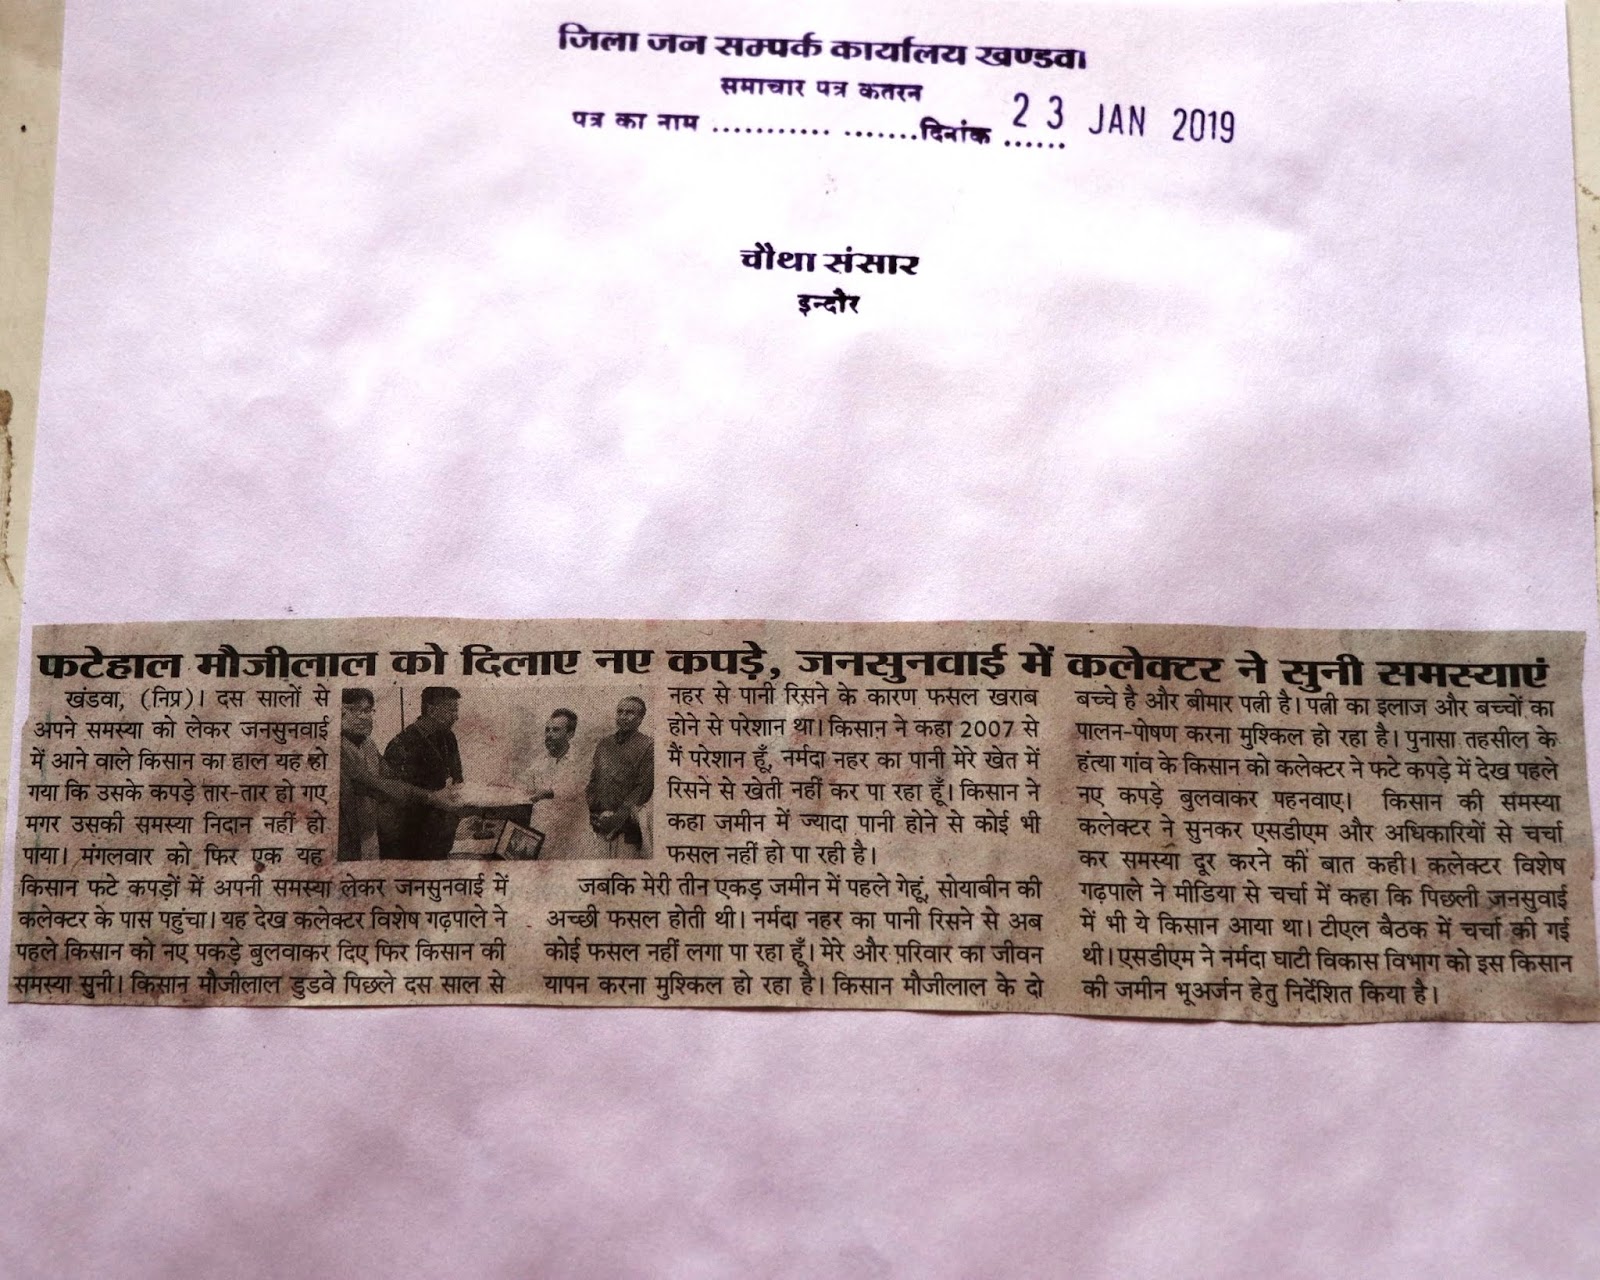 जिला जन सम्पर्क कार्यालय खण्डवा
समाचार पत्र कतरन
पत्र का नाम ........... .......दिनांक ......
23 JAN 2019
चौथा संसार
इन्दौर
फटेहाल मौजीलाल को दिलाए नए कपड़े, जनसुनवाई में कलेक्टर ने सुनी समस्याएं
खंडवा, (निप्र)। दस सालों से
अपने समस्या को लेकर जनसुनवाई
में आने वाले किसान का हाल यह हो
गया कि उसके कपड़े तार-तार हो गए
मगर उसकी समस्या निदान नहीं हो
पाया। मंगलवार को फिर एक यह
किसान फटे कपड़ों में अपनी समस्या लेकर जनसुनवाई में
कलेक्टर के पास पहुंचा। यह देख कलेक्टर विशेष गढ़पाले ने
पहले किसान को नए पकड़े बुलवाकर दिए फिर किसान की
समस्या सुनी। किसान मौजीलाल डुडवे पिछले दस साल से
नहर से पानी रिसने के कारण फसल खराब
होने से परेशान था। किसान ने कहा 2007 से
मैं परेशान हूँ, नर्मदा नहर का पानी मेरे खेत में
रिसने से खेती नहीं कर पा रहा हूँ। किसान ने
कहा जमीन में ज्यादा पानी होने से कोई भी
फसल नहीं हो पा रही है।
जबकि मेरी तीन एकड़ जमीन में पहले गेहूं, सोयाबीन की
अच्छी फसल होती थी। नर्मदा नहर का पानी रिसने से अब
कोई फसल नहीं लगा पा रहा हूँ। मेरे और परिवार का जीवन
यापन करना मुश्किल हो रहा है। किसान मौजीलाल के दो
बच्चे है और बीमार पत्नी है। पत्नी का इलाज और बच्चों का
पालन-पोषण करना मुश्किल हो रहा है। पुनासा तहसील के
हंत्या गांव के किसान को कलेक्टर ने फटे कपड़े में देख पहले
नए कपड़े बुलवाकर पहनवाए। किसान की समस्या
कलेक्टर ने सुनकर एसडीएम और अधिकारियों से चर्चा
कर समस्या दूर करने की बात कही। कलेक्टर विशेष
गढ़पाले ने मीडिया से चर्चा में कहा कि पिछली जनसुवाई
में भी ये किसान आया था। टीएल बैठक में चर्चा की गई
थी। एसडीएम ने नर्मदा घाटी विकास विभाग को इस किसान
की जमीन भूअर्जन हेतु निर्देशित किया है।